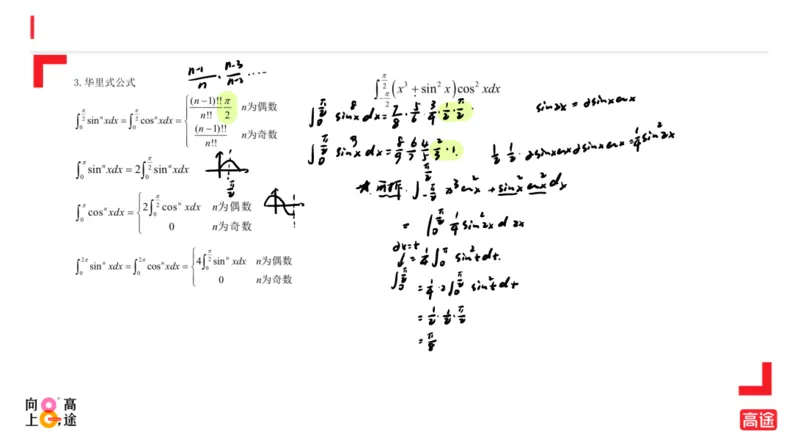 3. 华里式公式
n-1/n · n-3/n-2 ····
∫₀^{π/2} sinⁿxdx = ∫₀^{π/2} cosⁿxdx = { (n-1)!!/n!! π/2 n为偶数
(n-1)!!/n!! n为奇数
∫₀^{π} sinⁿxdx = 2∫₀^{π/2} sinⁿxdx
∫₀^{π} cosⁿxdx = { 2∫₀^{π/2} cosⁿxdx n为偶数
0 n为奇数
∫₀^{2π} sinⁿxdx = ∫₀^{2π} cosⁿxdx = { 4∫₀^{π/2} sinⁿxdx n为偶数
0 n为奇数
∫_{-π/2}^{π/2} (x³ + sin²x)cos²xdx
∫₀^{π/2} sin⁸xdx = 7/8 · 5/6 · 3/4 · 1/2 · π/2.
sin2x = 2sinxcosx
∫₀^{π/2} sin⁹xdx = 8/9 6/7 4/5 2/3 · 1.
1/2 · 1/2 · 2sinxcosx2sinxcosx = 1/4 sin²2x
∫_{-π/2}^{π/2} x³cos²x + sin²xcos²xdx
= ∫₀^{π/2} 1/4 sin²2xd2x
2x=t
= 1/4 ∫₀^{π} sin²tdt.
∫₀^{π/2}
= 1/4 · 2∫₀^{π/2} sin²tdt
= 1/2 · 1/2 · π/2
= π/8
向上 高途
高途